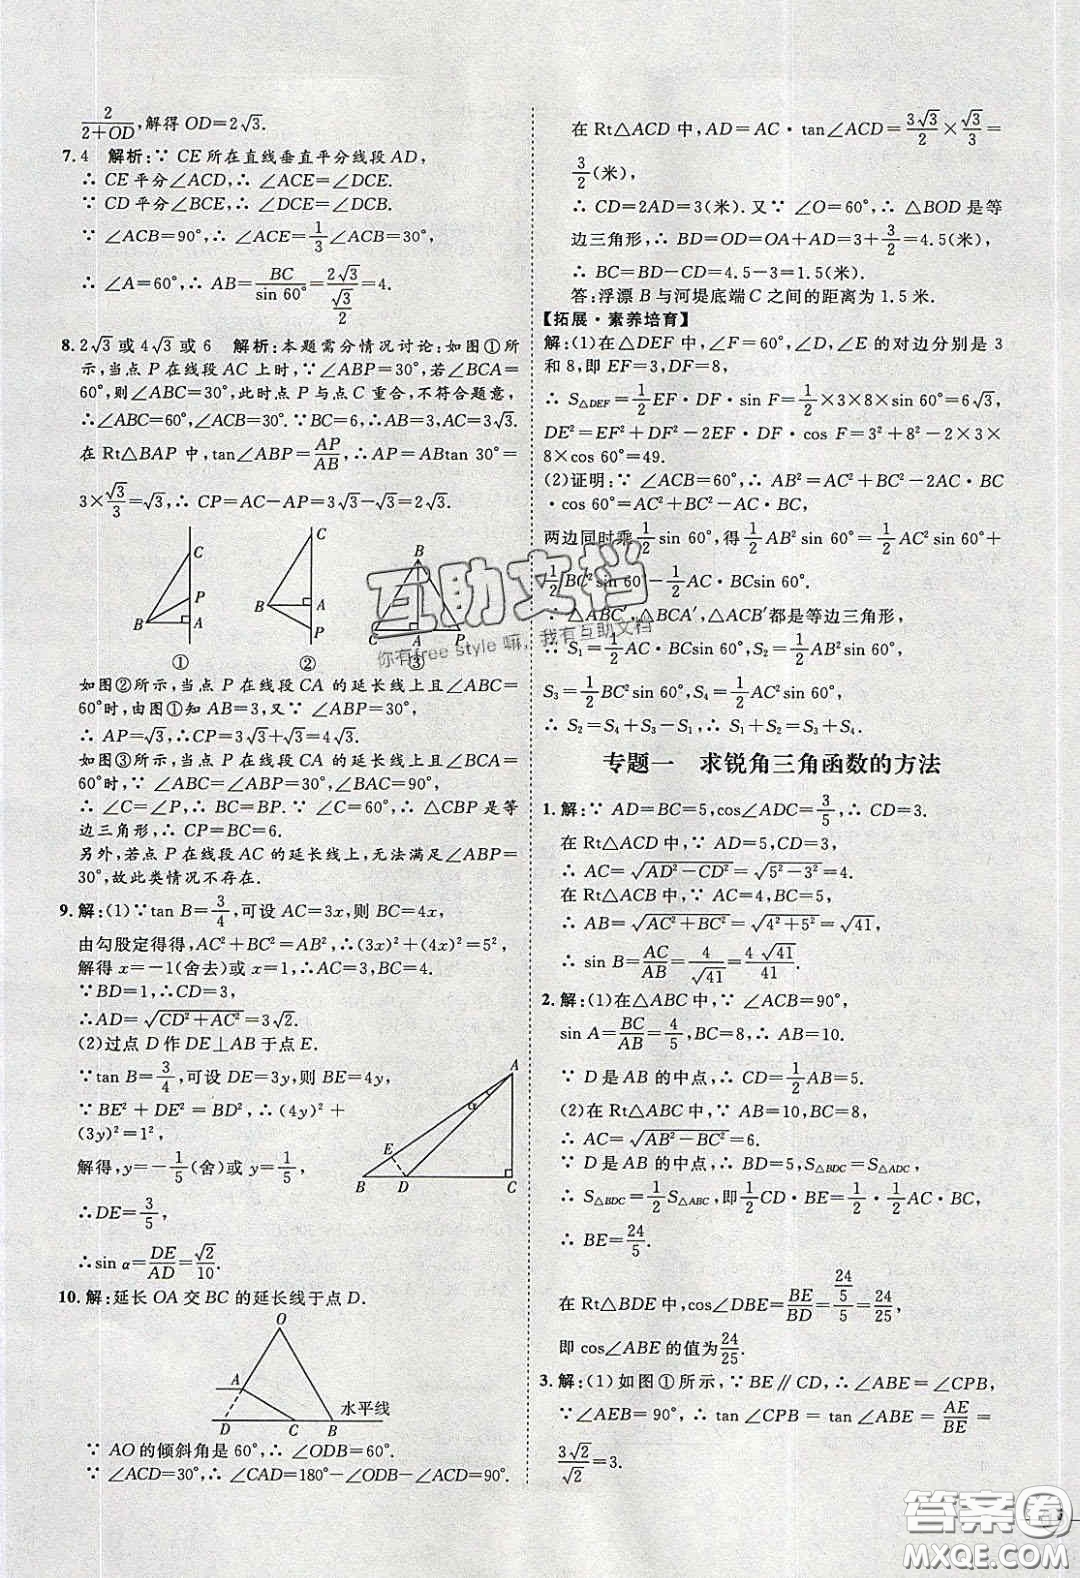 2/(2+OD),解得 OD=2√3.
7.4 解析:∵ CE 所在直线垂直平分线段 AD,
∴ CE 平分∠ACD,∴ ∠ACE=∠DCE.
∵ CD 平分∠BCE,∴ ∠DCE=∠DCB.
∵ ∠ACB=90°,∴ ∠ACE=1/3∠ACB=30°,
∴ ∠A=60°,∴ AB=BC/sin 60°=2√3/(√3/2)=4.
8. 2√3 或 4√3 或 6 解析:本题需分情况讨论:如图①所
示,当点 P 在线段 AC 上时,∵∠ABP=30°,若∠BCA=
60°,则∠ABC=30°,此时点 P 与点 C 重合,不符合题意,
∴∠ABC=60°,∠BCA=30°.∵BC=6,∴AB=3,AC=3√3.
在 Rt△BAP 中,tan∠ABP=AP/AB,∴AP=ABtan 30°=
3×√3/3=√3,∴ CP=AC-AP=3√3-√3=2√3.
C P B A ①
C B A P ②
B C A P ③
如图②所示,当点 P 在线段 CA 的延长线上且∠ABC=
60°时,由图①知 AB=3,又∵ ∠ABP=30°,
∴ AP=√3,∴CP=3√3+√3=4√3.
如图③所示,当点 P 在线段 CA 的延长线上且∠BCA=
60°时,∴ ∠ABC=30°.∵ ∠ABP=30°,
∴ ∠C=∠P=∠CBP=60°,∴ △CBP 是等
边三角形,∴ CP=BC=6.
另外,若点 P 在线段 AC 的延长线上,无法满足∠ABP=
30°,故此类情况不存在.
9. 解:(1)∵tan B=3/4,可设 AC=3x,则 BC=4x,
由勾股定得得,AC²+BC²=AB²,∴(3x)²+(4x)²=5²,
解得 x=-1(舍去)或 x=1,∴AC=3,BC=4.
∵BD=1,∴CD=3,
∴AD=√(CD²+AC²)=3√2.
(2)过点 D 作 DE⊥AB 于点 E.
∵tan B=3/4,可设 DE=3y,则 BE=4y,
∵BE²+DE²=BD²,∴(4y)²+
(3y)²=1²,
解得,y=-1/5(舍)或 y=1/5,
∴DE=3/5,
∴sin α=DE/AD=√2/10.
A α E B D C
10. 解:延长 OA 交 BC 的延长线于点 D.
O
A
水平线
D C B
∵ AO 的倾斜角是 60°,∴ ∠ODB=60°.
∵ ∠ACD=30°,∴ ∠CAD=180°-∠ODB-∠ACD=90°.
在 Rt△ACD 中,AD=AC·tan∠ACD=3√3/2×√3/3=
3/2(米),
∴ CD=2AD=3(米).又∵ ∠O=60°,∴ △BOD 是等
边三角形,∴ BD=OD=OA+AD=3+3/2=4.5(米),
∴ BC=BD-CD=4.5-3=1.5(米).
答:浮漂 B 与河堤底端 C 之间的距离为 1.5 米.
【拓展·素养培育】
解:(1)在△DEF 中,∠F=60°,∠D,∠E 的对边分别是 3
和 8,即 EF=3,DF=8,
∴ S△DEF=1/2EF·DF·sin F=1/2×3×8×sin 60°=6√3,
DE²=EF²+DF²-2EF·DF·cos F=3²+8²-2×3×
8×cos 60°=49.
(2)证明:∵ ∠ACB=60°,∴ AB²=AC²+BC²-2AC·BC
·cos 60°=AC²+BC²-AC·BC,
两边同时乘1/2sin 60°,得1/2AB²sin 60°=1/2AC²sin 60°+
1/2BC²sin 60-1/2AC·BCsin 60°,
∵ △ABC′,△BCA′,△ACB′都是等边三角形,
∴ S₁=1/2AC·BCsin 60°,S₂=1/2AB²sin 60°,
S₃=1/2BC²sin 60°,S₄=1/2AC²sin 60°,
∴ S₂=S₄+S₃-S₁,∴ S₁+S₂=S₃+S₄.
专题一 求锐角三角函数的方法
1. 解:∵ AD=BC=5,cos∠ADC=3/5,∴ CD=3.
在 Rt△ACD 中,∵ AD=5,CD=3,
∴ AC=√(AD²-CD²)=√(5²-3²)=4.
在 Rt△ACB 中,∵ AC=4,BC=5,
∴ AB=√(AC²+BC²)=√(4²+5²)=√41,
∴ sin B=AC/AB=4/√41=4√41/41.
2. 解:(1)在△ABC 中,∵ ∠ACB=90°,
sin A=BC/AB=4/5,BC=8,∴ AB=10.
∵ D 是 AB 的中点,∴ CD=1/2AB=5.
(2)在 Rt△ABC 中,∵ AB=10,BC=8,
∴ AC=√(AB²-BC²)=6.
∵ D 是 AB 的中点,∴ BD=5,S△BDC=S△ADC,
∴ S△BDC=1/2S△ABC,即1/2CD·BE=1/2·1/2AC·BC,
∴ BE=24/5.
在 Rt△BDE 中,cos∠DBE=BE/BD=(24/5)/5=24/25,
即 cos∠ABE 的值为24/25.
3. 解:(1)如图①所示,∵ BE∥CD,∴ ∠ABE=∠CPB,
∵ ∠AEB=90°,∴ tan ∠CPB=tan ∠ABE=AE/BE=
3√2/√2=3.
互助文档
你有free style 嘛,我有互助文档
答案圈
MXQE.COM